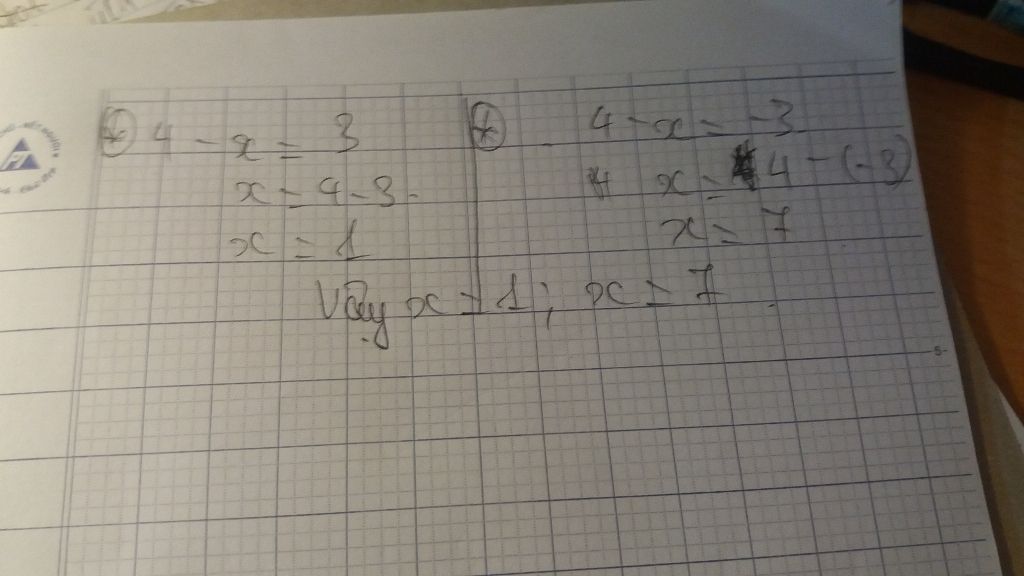 ⊛ 4 - x = 3
x = 4 - 3
x = 1
⊛ 4 - x = -3
x = 4 - (-3)
x = 7
Vậy x = 1; x = 7.